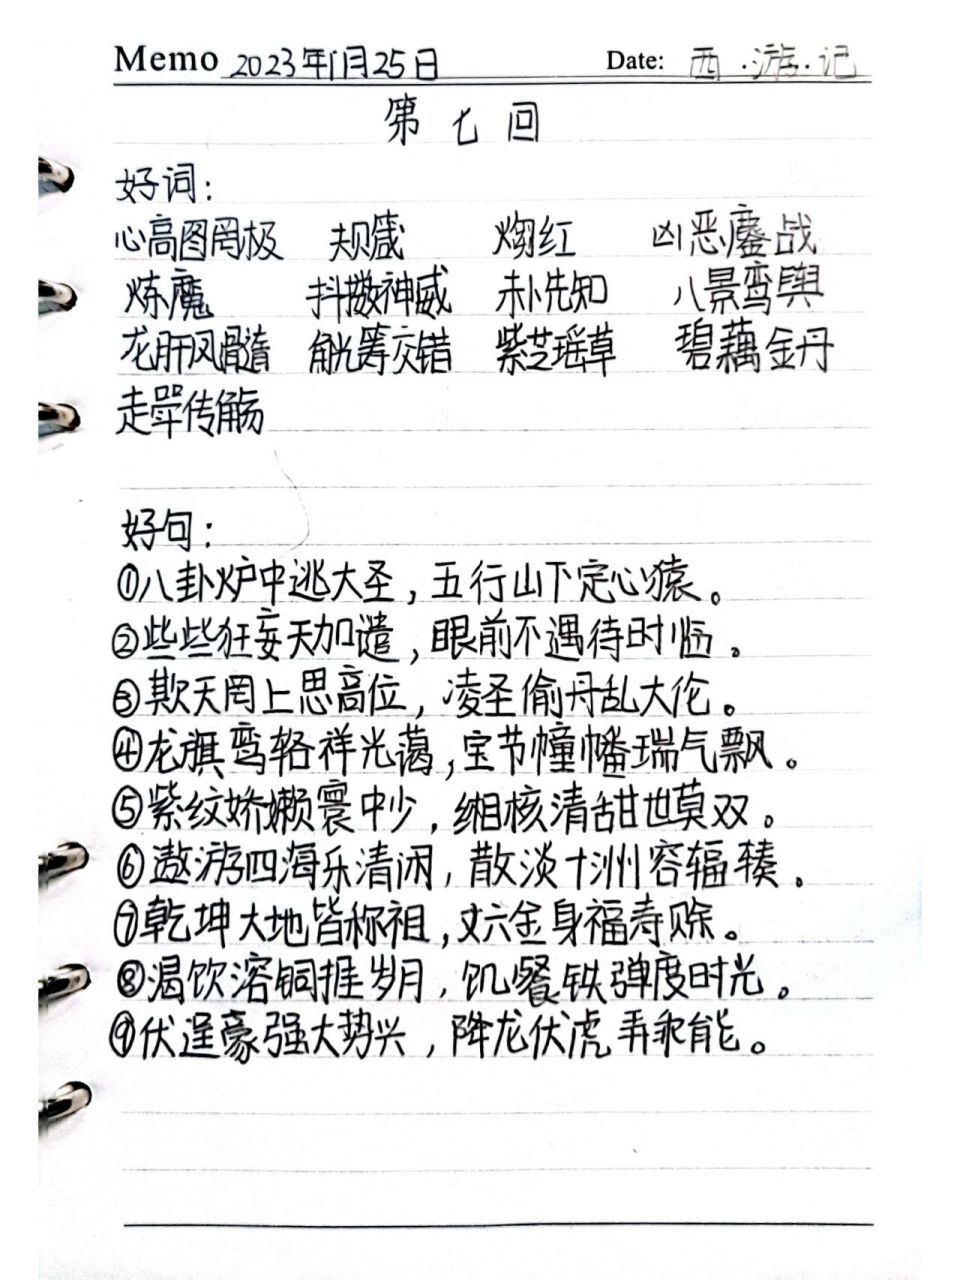 Memo 2023年1月25日 Date: 西·游·记
第七回
好词:
心高图罔极 规箴 焰红 凶恶鏖战
炼魔 抖擞神威 未卜先知 八景鸾舆
龙肝凤髓 觥筹交错 紫芝瑶草 碧藕金丹
走斝传觞
好句:
①八卦炉中逃大圣,五行山下定心猿。
②些些狂妄天加谴,眼前不遇待时临。
③欺天罔上思高位,凌圣偷丹乱大伦。
④龙旗鸾辂祥光蔼,宝节幢幡瑞气飘。
⑤紫纹娇嫩寰中少,缃核清甜世莫双。
⑥遨游四海乐清闲,散淡十洲容辐辏。
⑦乾坤大地皆称祖,丈六金身福寿赊。
⑧渴饮溶铜捱岁月,饥餐铁弹度时光。
⑨伏逞豪强大势兴,降龙伏虎弄乖能。